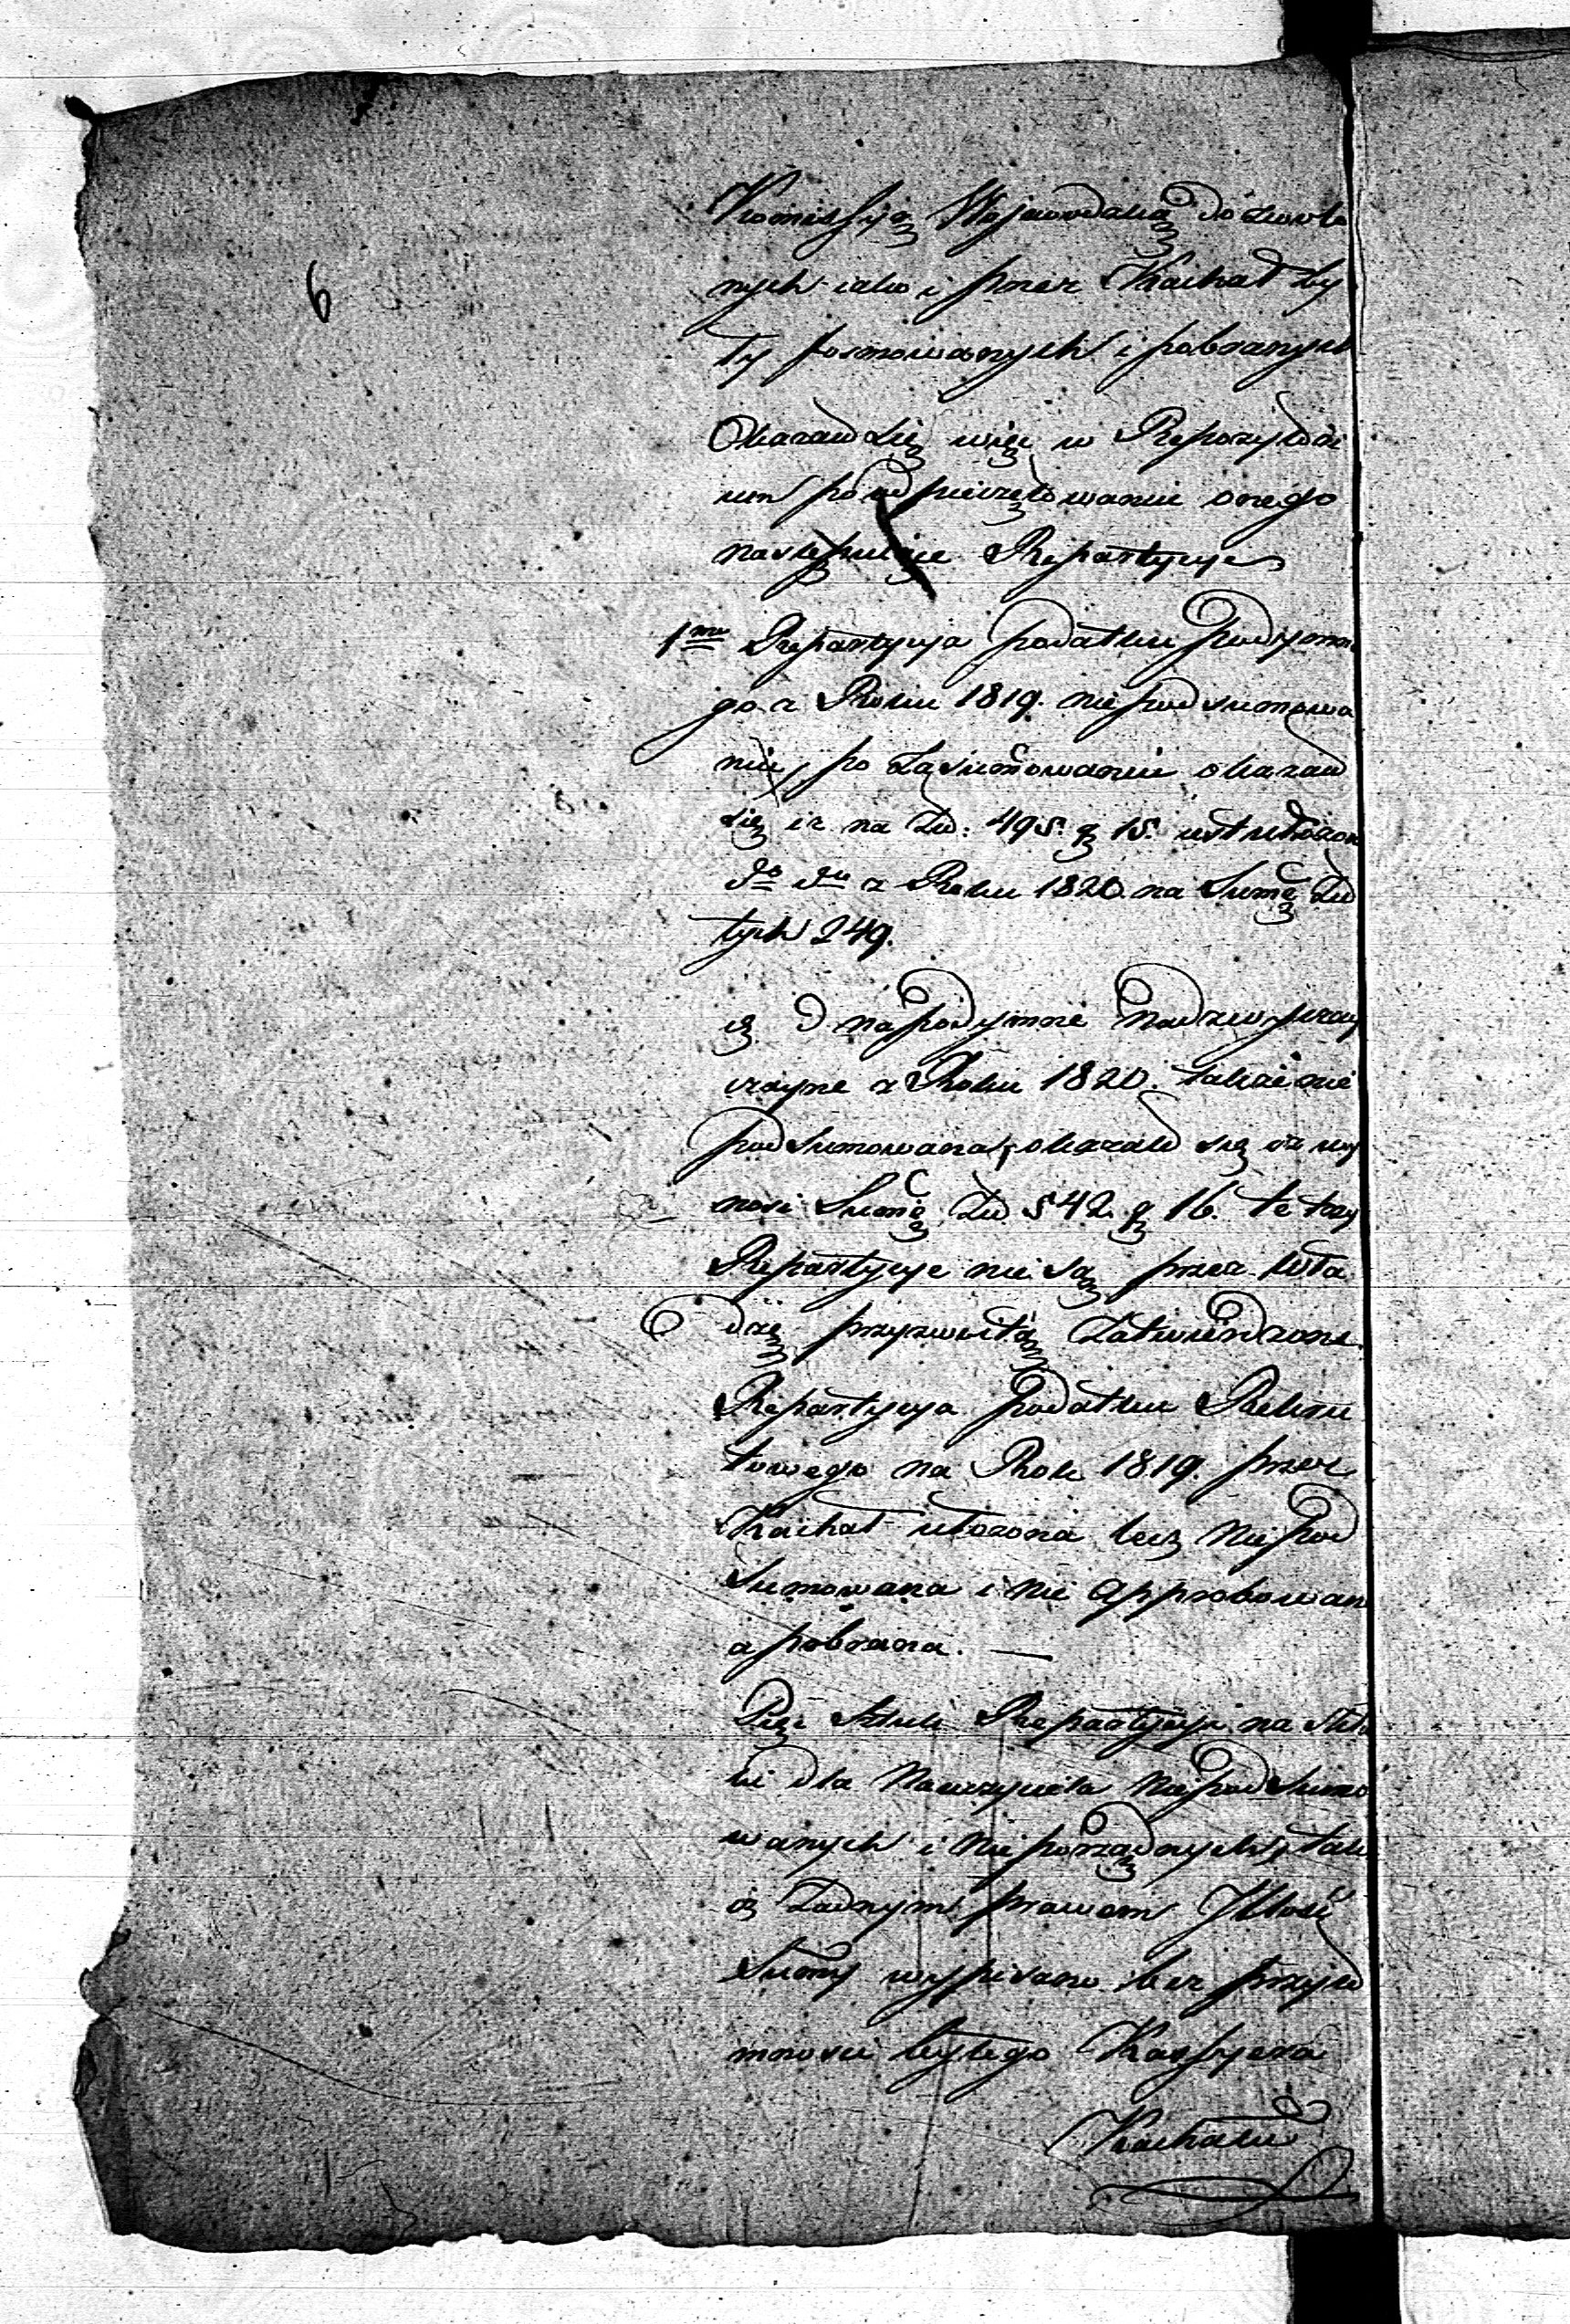 6
Komissyią Wojewodzką dozwolo
nych iako i przez Kachał by
ły formowanych i pobranych
Okazało się więc w Repozytori
um po odpieczętowaniu onego
następuiące Repartycye
1mo Repartycyja podatku Podymne
go z Roku 1819. nie podsumowa
na, po zasumowaniu okazało
się iż na Zł: 495. g 15. ustułożon
do do z Roku 1820. na Sumę Zło
tych 249.
na Podymne Nadzwyczay
czayne z Roku 1820. także nie
podsumowana, okazało się iż wy
nosi Sumę Zł. 542. g 16. te trzy
Repartycye nie są przez Wła
dzę przyzwoitą Zatwierdzone.
Repartycyja Podatku Rekru
towego na Rok 1819. przez
Kachał ułożona lecz nie pod
sumowana i nie approbowan
a pobrana. —
Pięć Sztuk Repartycyi na Szko
łę dla Nauczyciela Nie podsumo
wanych i Nie porządnych, tak
iż żadnym prawem Ilość
Summy wypisano bez przyto
mności byłego Kassyera
Kachału